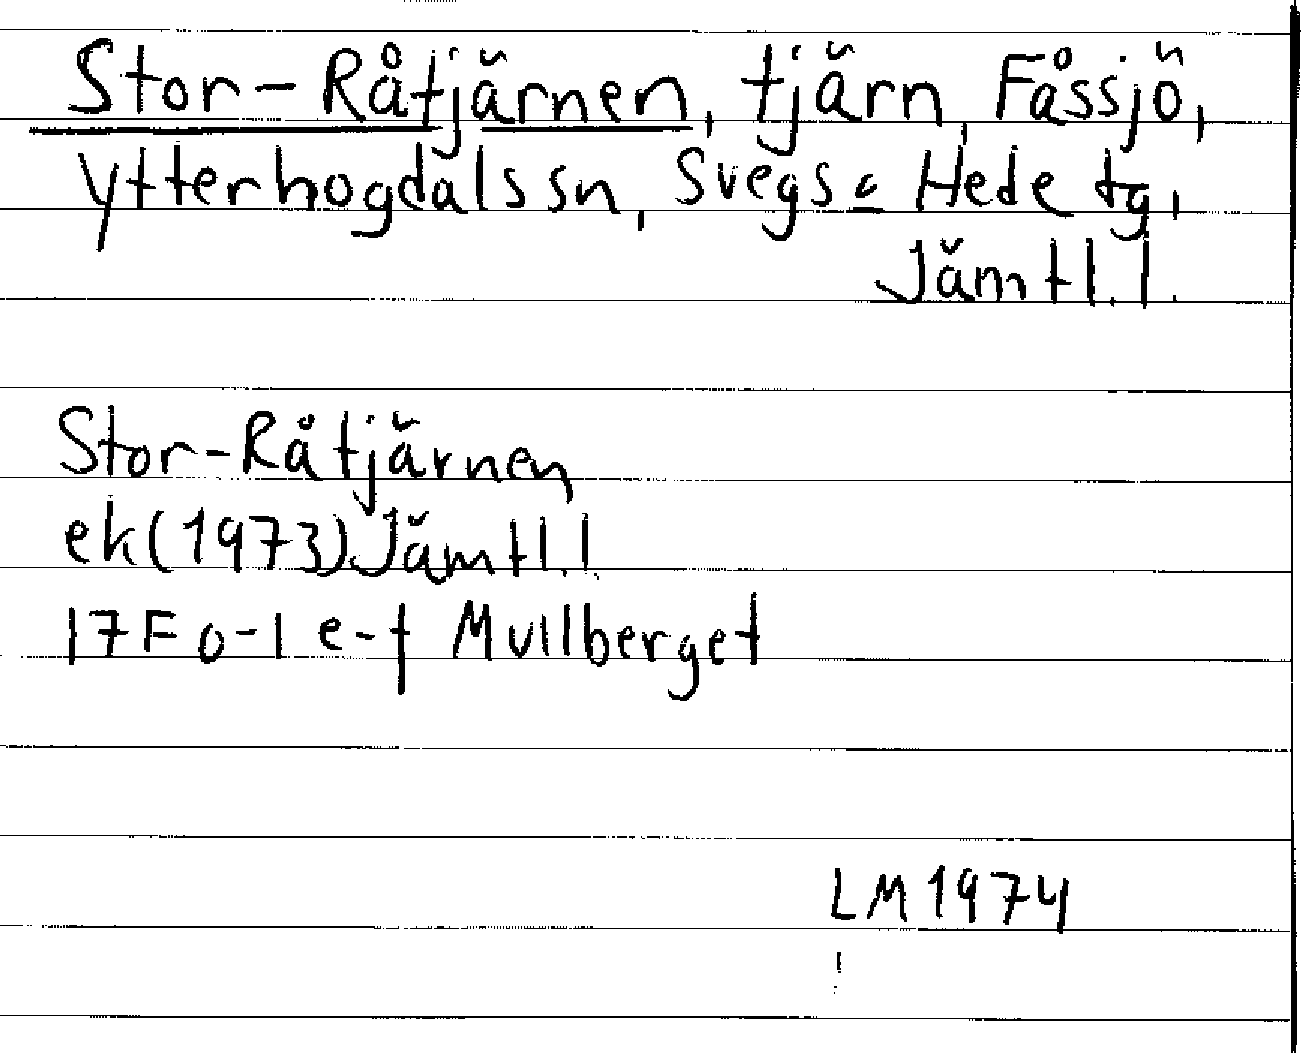 Stor-Råtjärnen, tjärn, Fåssjö,
Ytterhogdals sn, Svegs o Hede tg,
Jämtl. l.
Stor-Råtjärnen
ek (1973) Jämtl. l.
17F 0-1 e-f Mullberget
LM 1974